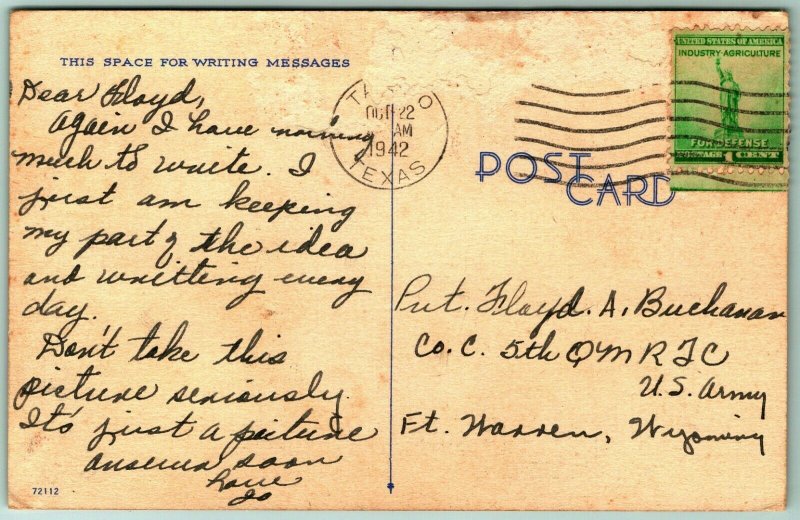 THIS SPACE FOR WRITING MESSAGES
Dear Floyd,
Again I have
much to write. I
just am keeping
my part of the idea
and writting every
day.
Don't take this
picture seriously.
It's just a picture
answer soon
love
Jo
72112
OCT 22
AM
1942
TEXAS
UNITED STATES OF AMERICA
INDUSTRY-AGRICULTURE
FOR DEFENSE
1 CENT
POST
CARD
Pvt. Floyd. A. Buchanan
Co. C. 5th QMRTC
U.S. Army
Ft. Warren, Wyoming